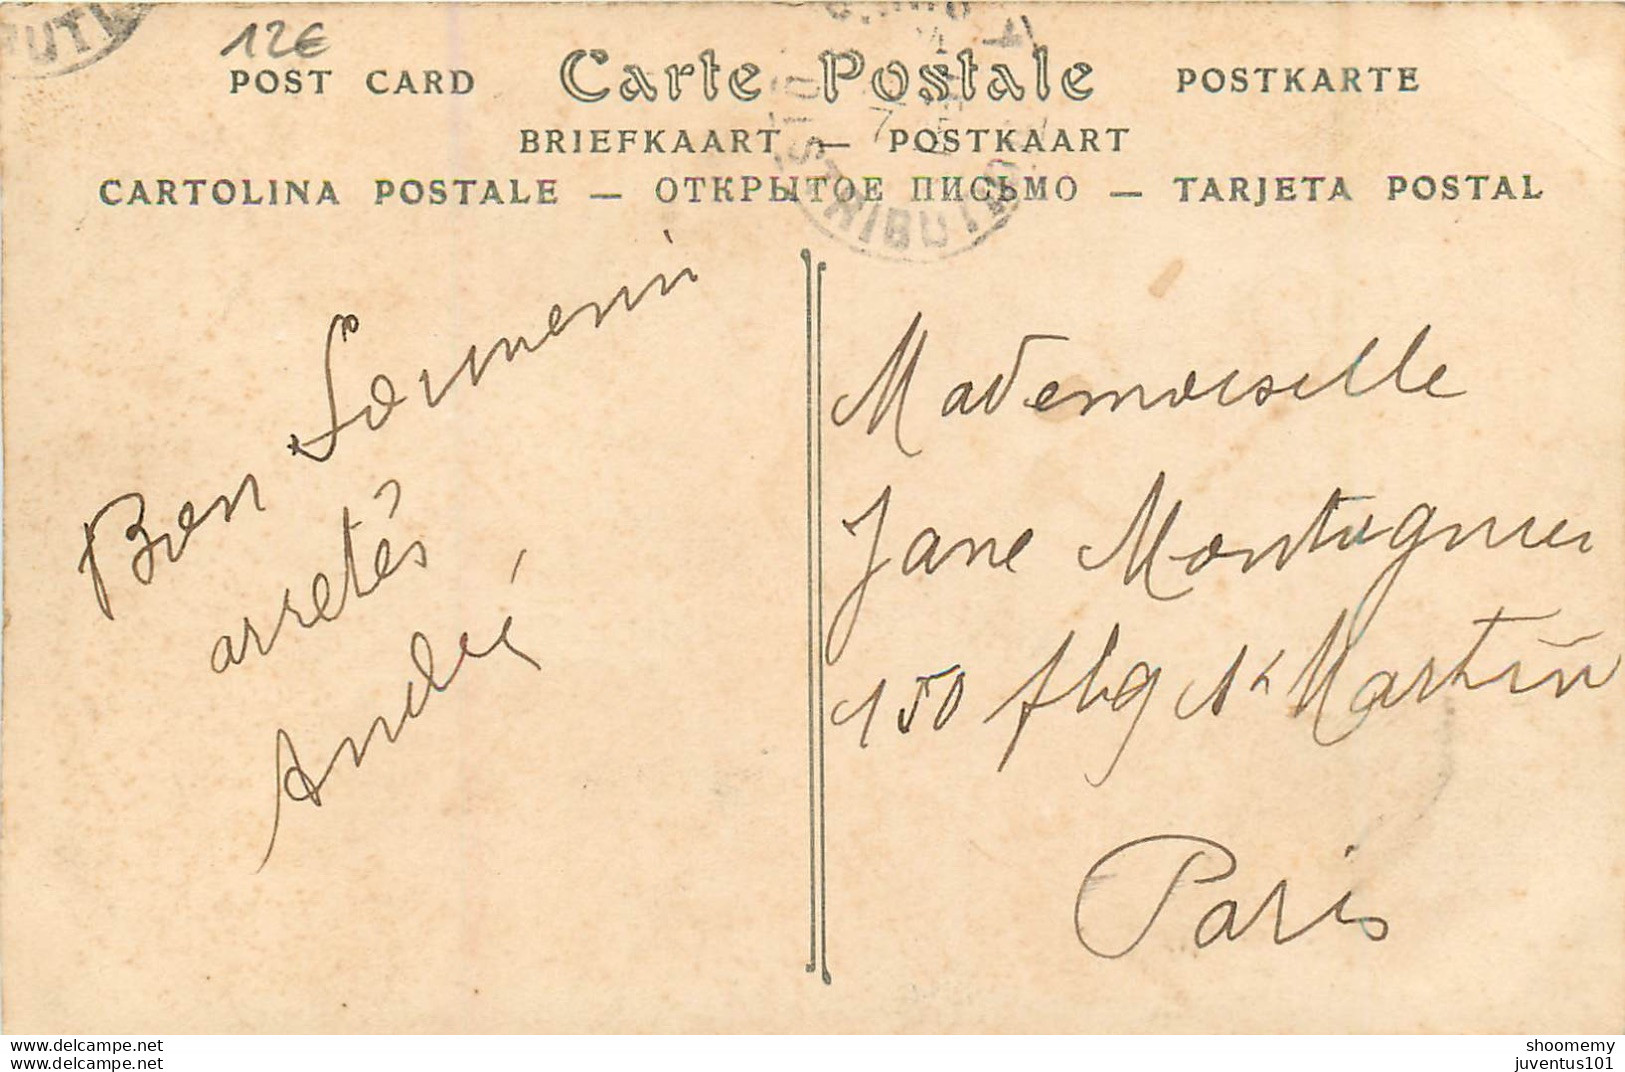 12€
POST CARD Carte Postale POSTKARTE
BRIEFKAART — POSTKAART
CARTOLINA POSTALE — ОТКРЫТОЕ ПИСЬМО — TARJETA POSTAL
DISTRIBUTION
Bien
arretés
André
Mademoiselle
Jane Montagnier
150 fbg St Martin
Paris
www.delcampe.net
www.delcampe.net
shoomemy
juventus101